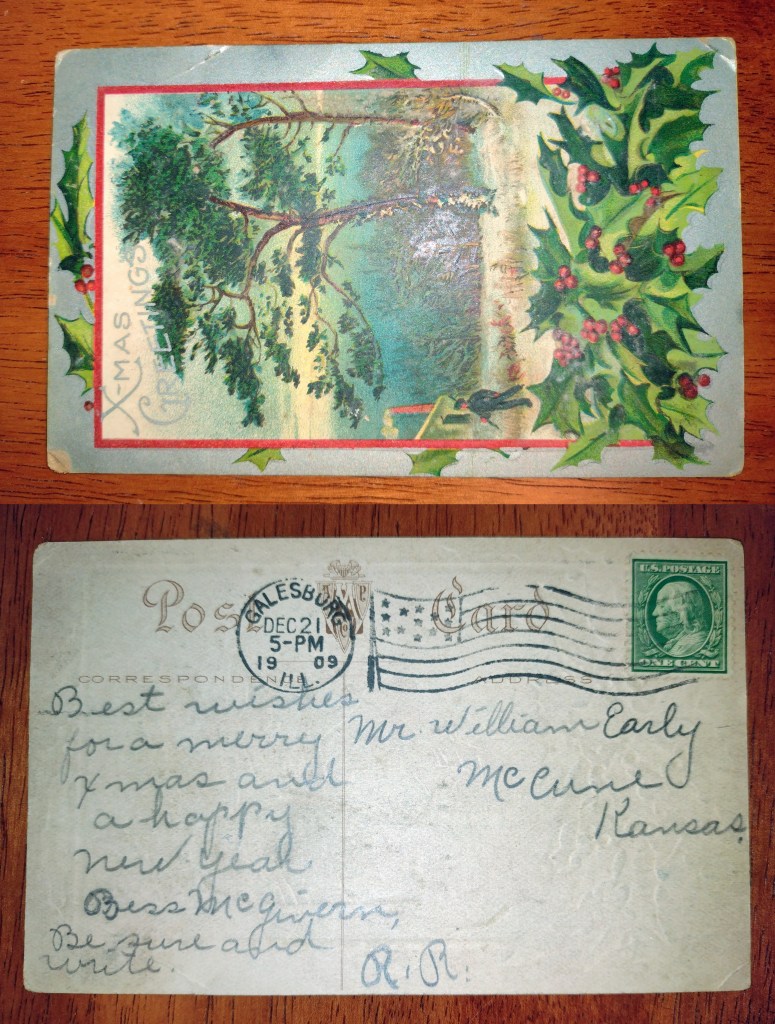 X-MAS
GREETINGS
Post Card
GALESBURG
DEC 21
5-PM
19 09
ILL.
U.S. POSTAGE
ONE CENT
CORRESPONDENCE
ADDRESS
Best wishes
for a merry
Xmas and
a happy
new year
Bess McGivern,
Be sure and
write.
Mr. William Early
McCune
Kansas.
R. R.